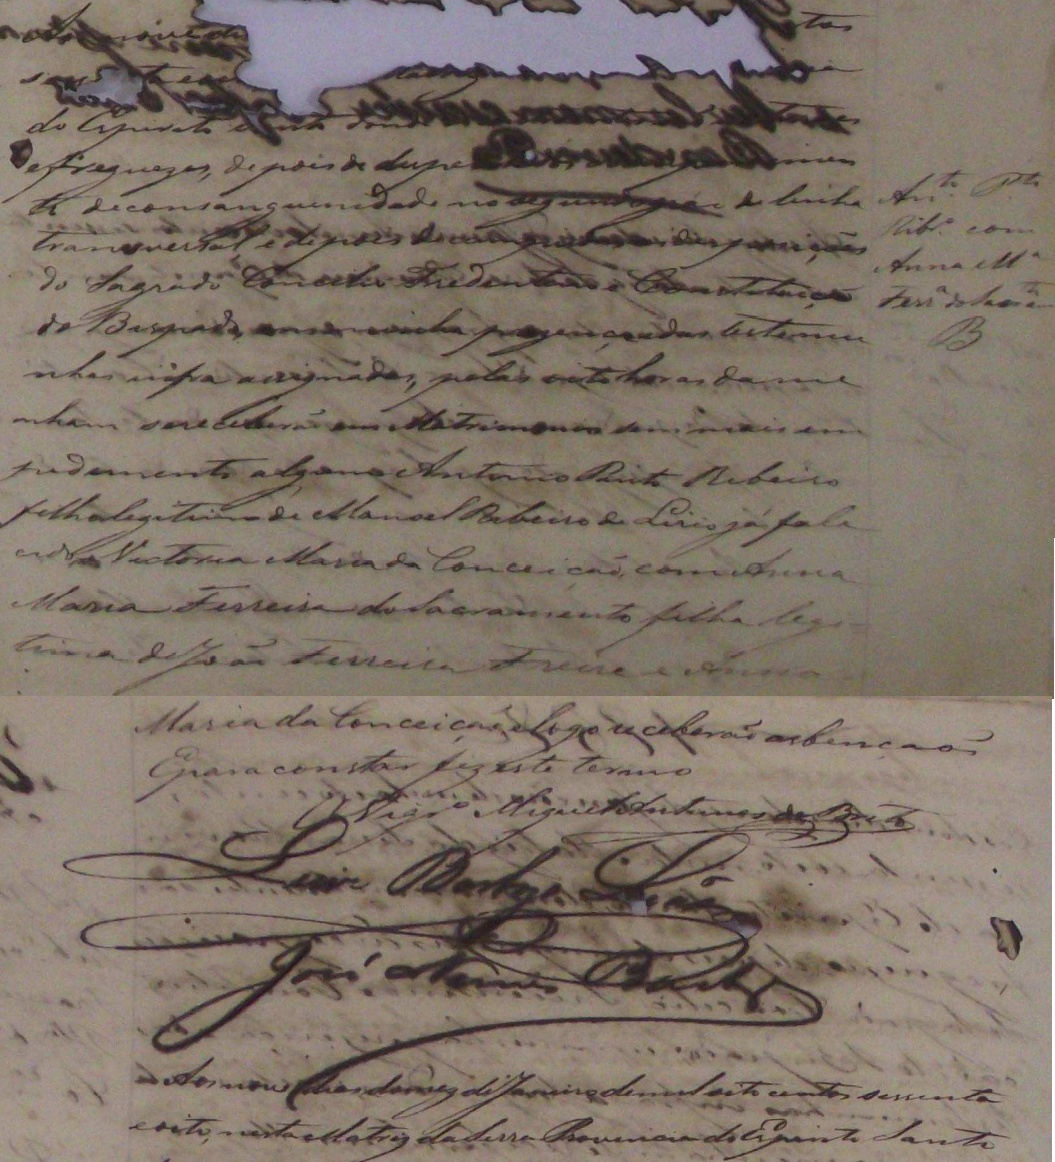 Aos nove di tos
sessenta e oito
do Espirito Santo
e freguezes, depois de dispe
te de consanguinidade no segundo grao de linha
transversal, e depois de compridas as desposições
do Sagrado Concelio Tredentino e Constituição
do Bispado, em minha prezença e das testemu
nhas infra assignadas, pelas oito horas da ma
nham se receberão em Matrimonio sem mais em
pedimento algum Antonio Pinto Ribeiro
filho legitimo de Manoel Ribeiro de Lirio já fale
cido e Victoria Maria da Conceição, com Anna
Maria Ferreira do Sacramento filha legi=
tima de João Ferreira Freire e Anna
Ant.º P.to
Rib.º com
Anna M.ª
Ferr.ª do Sacram.to
B
Maria da Conceição, e logo receberão as bençaõs
E para constar fiz este termo
O Vigr.º Miguel Antunes de Brito
Luiz Barbosa
José Nunes
Aos nove dias do mez de Janeiro de mil oito centos sessenta
e oito, nesta Matriz da Serra Provincia do Espirito Santo